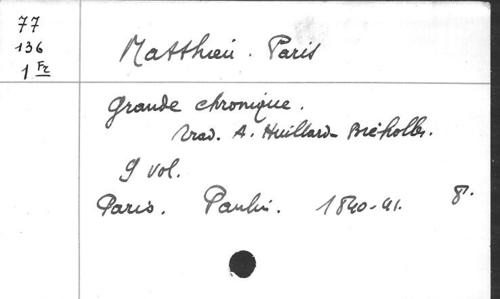 77
136
1 Fr
Matthieu. Paris
Grande chronique.
Trad. A. Huillard-Bréholles.
9 vol.
Paris. Paulin. 1840-41. 8°.